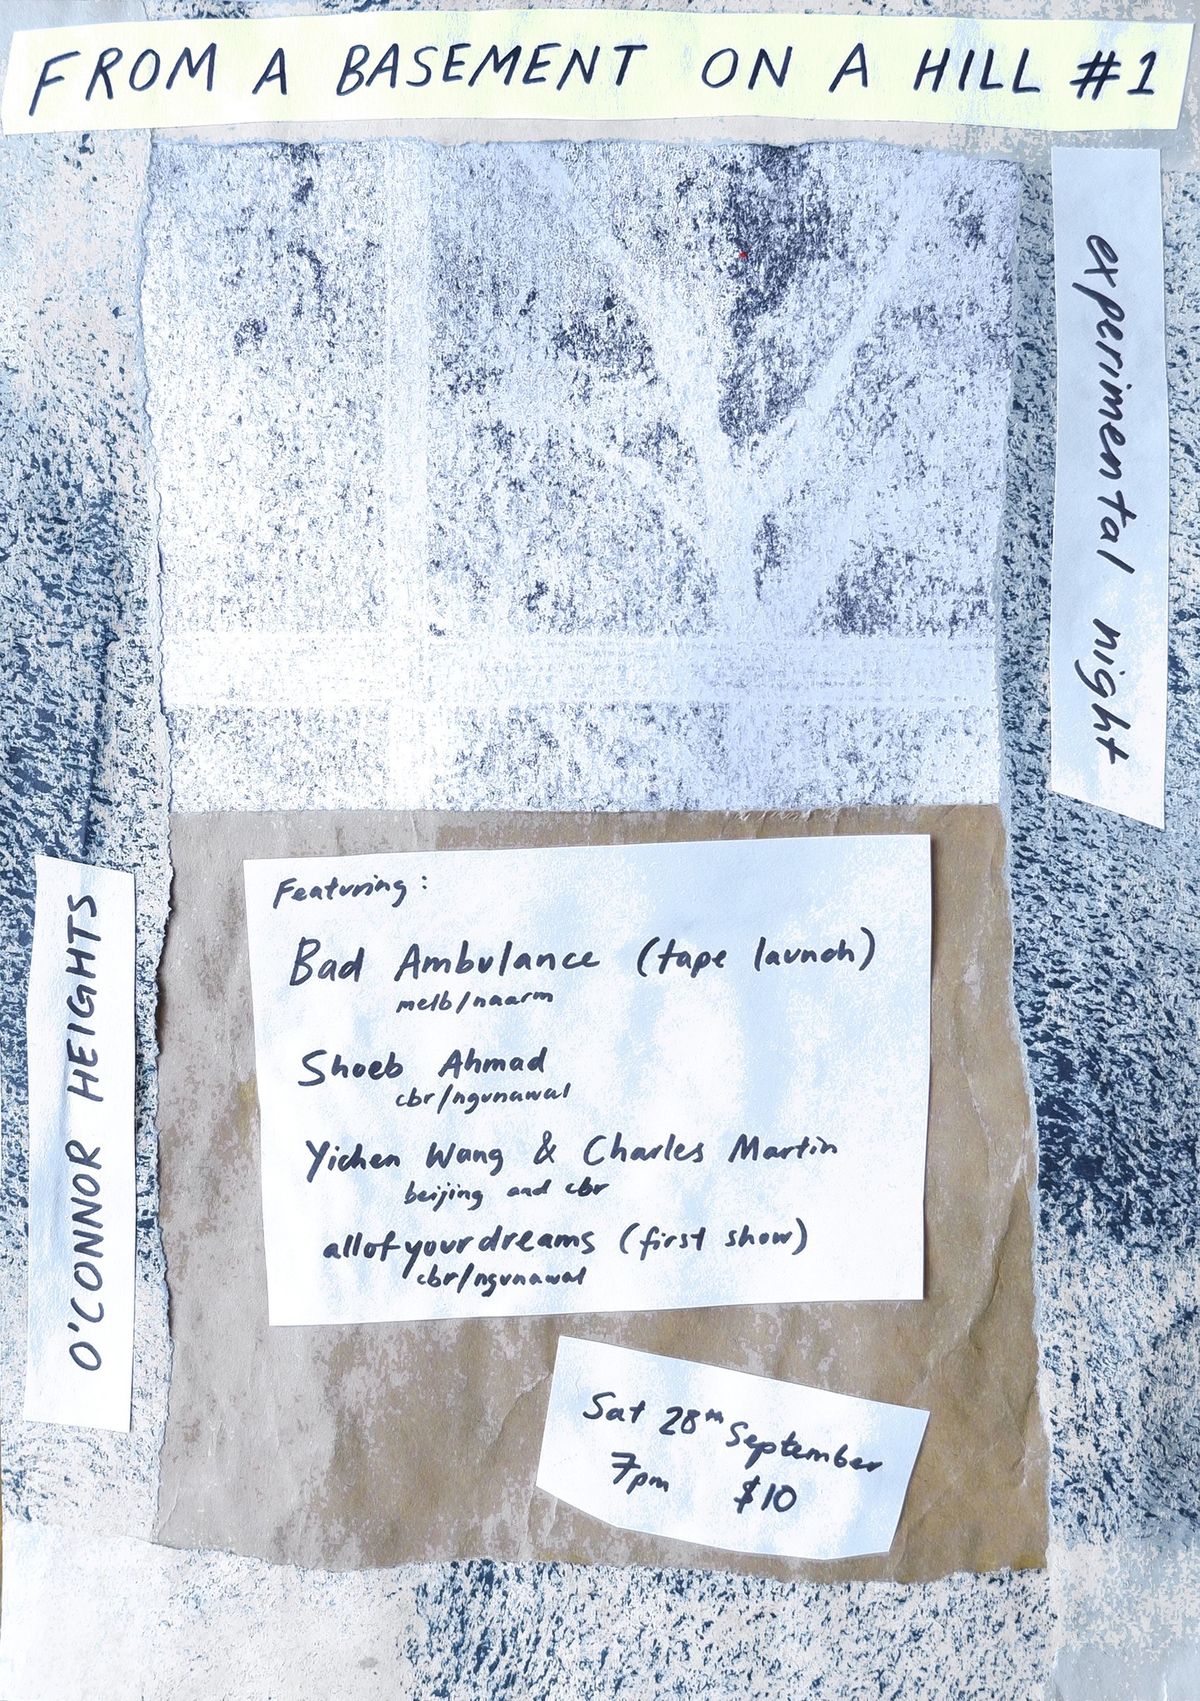 FROM A BASEMENT ON A HILL #1
experimental night
Featuring:
Bad Ambulance (tape launch)
melb/naarm
Shoeb Ahmad
cbr/ngunawal
Yichen Wang & Charles Martin
beijing and cbr
allofyourdreams (first show)
cbr/ngunawal
O'CONNOR HEIGHTS
Sat 28th September
7pm $10